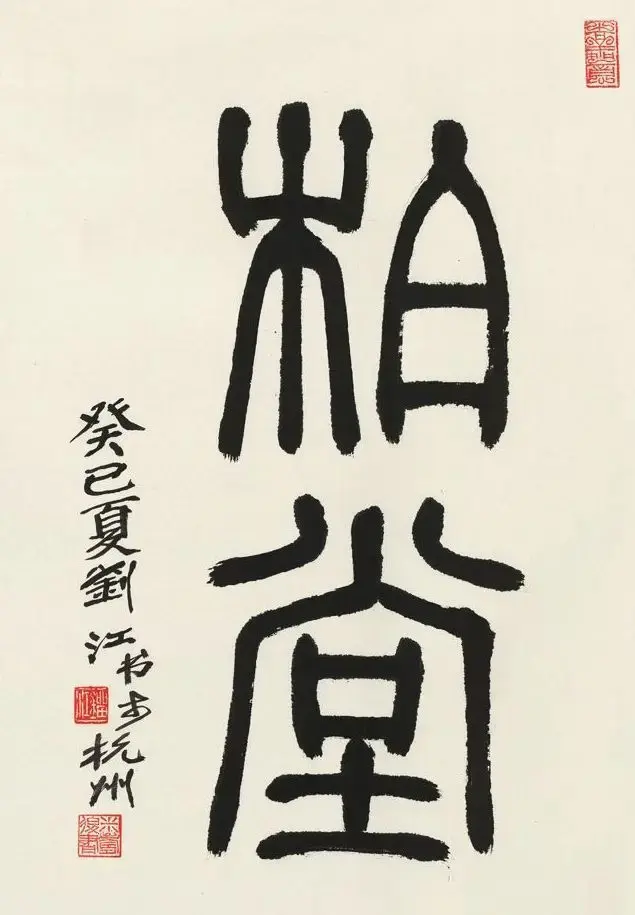 柏堂
癸巳夏劉江书於杭州